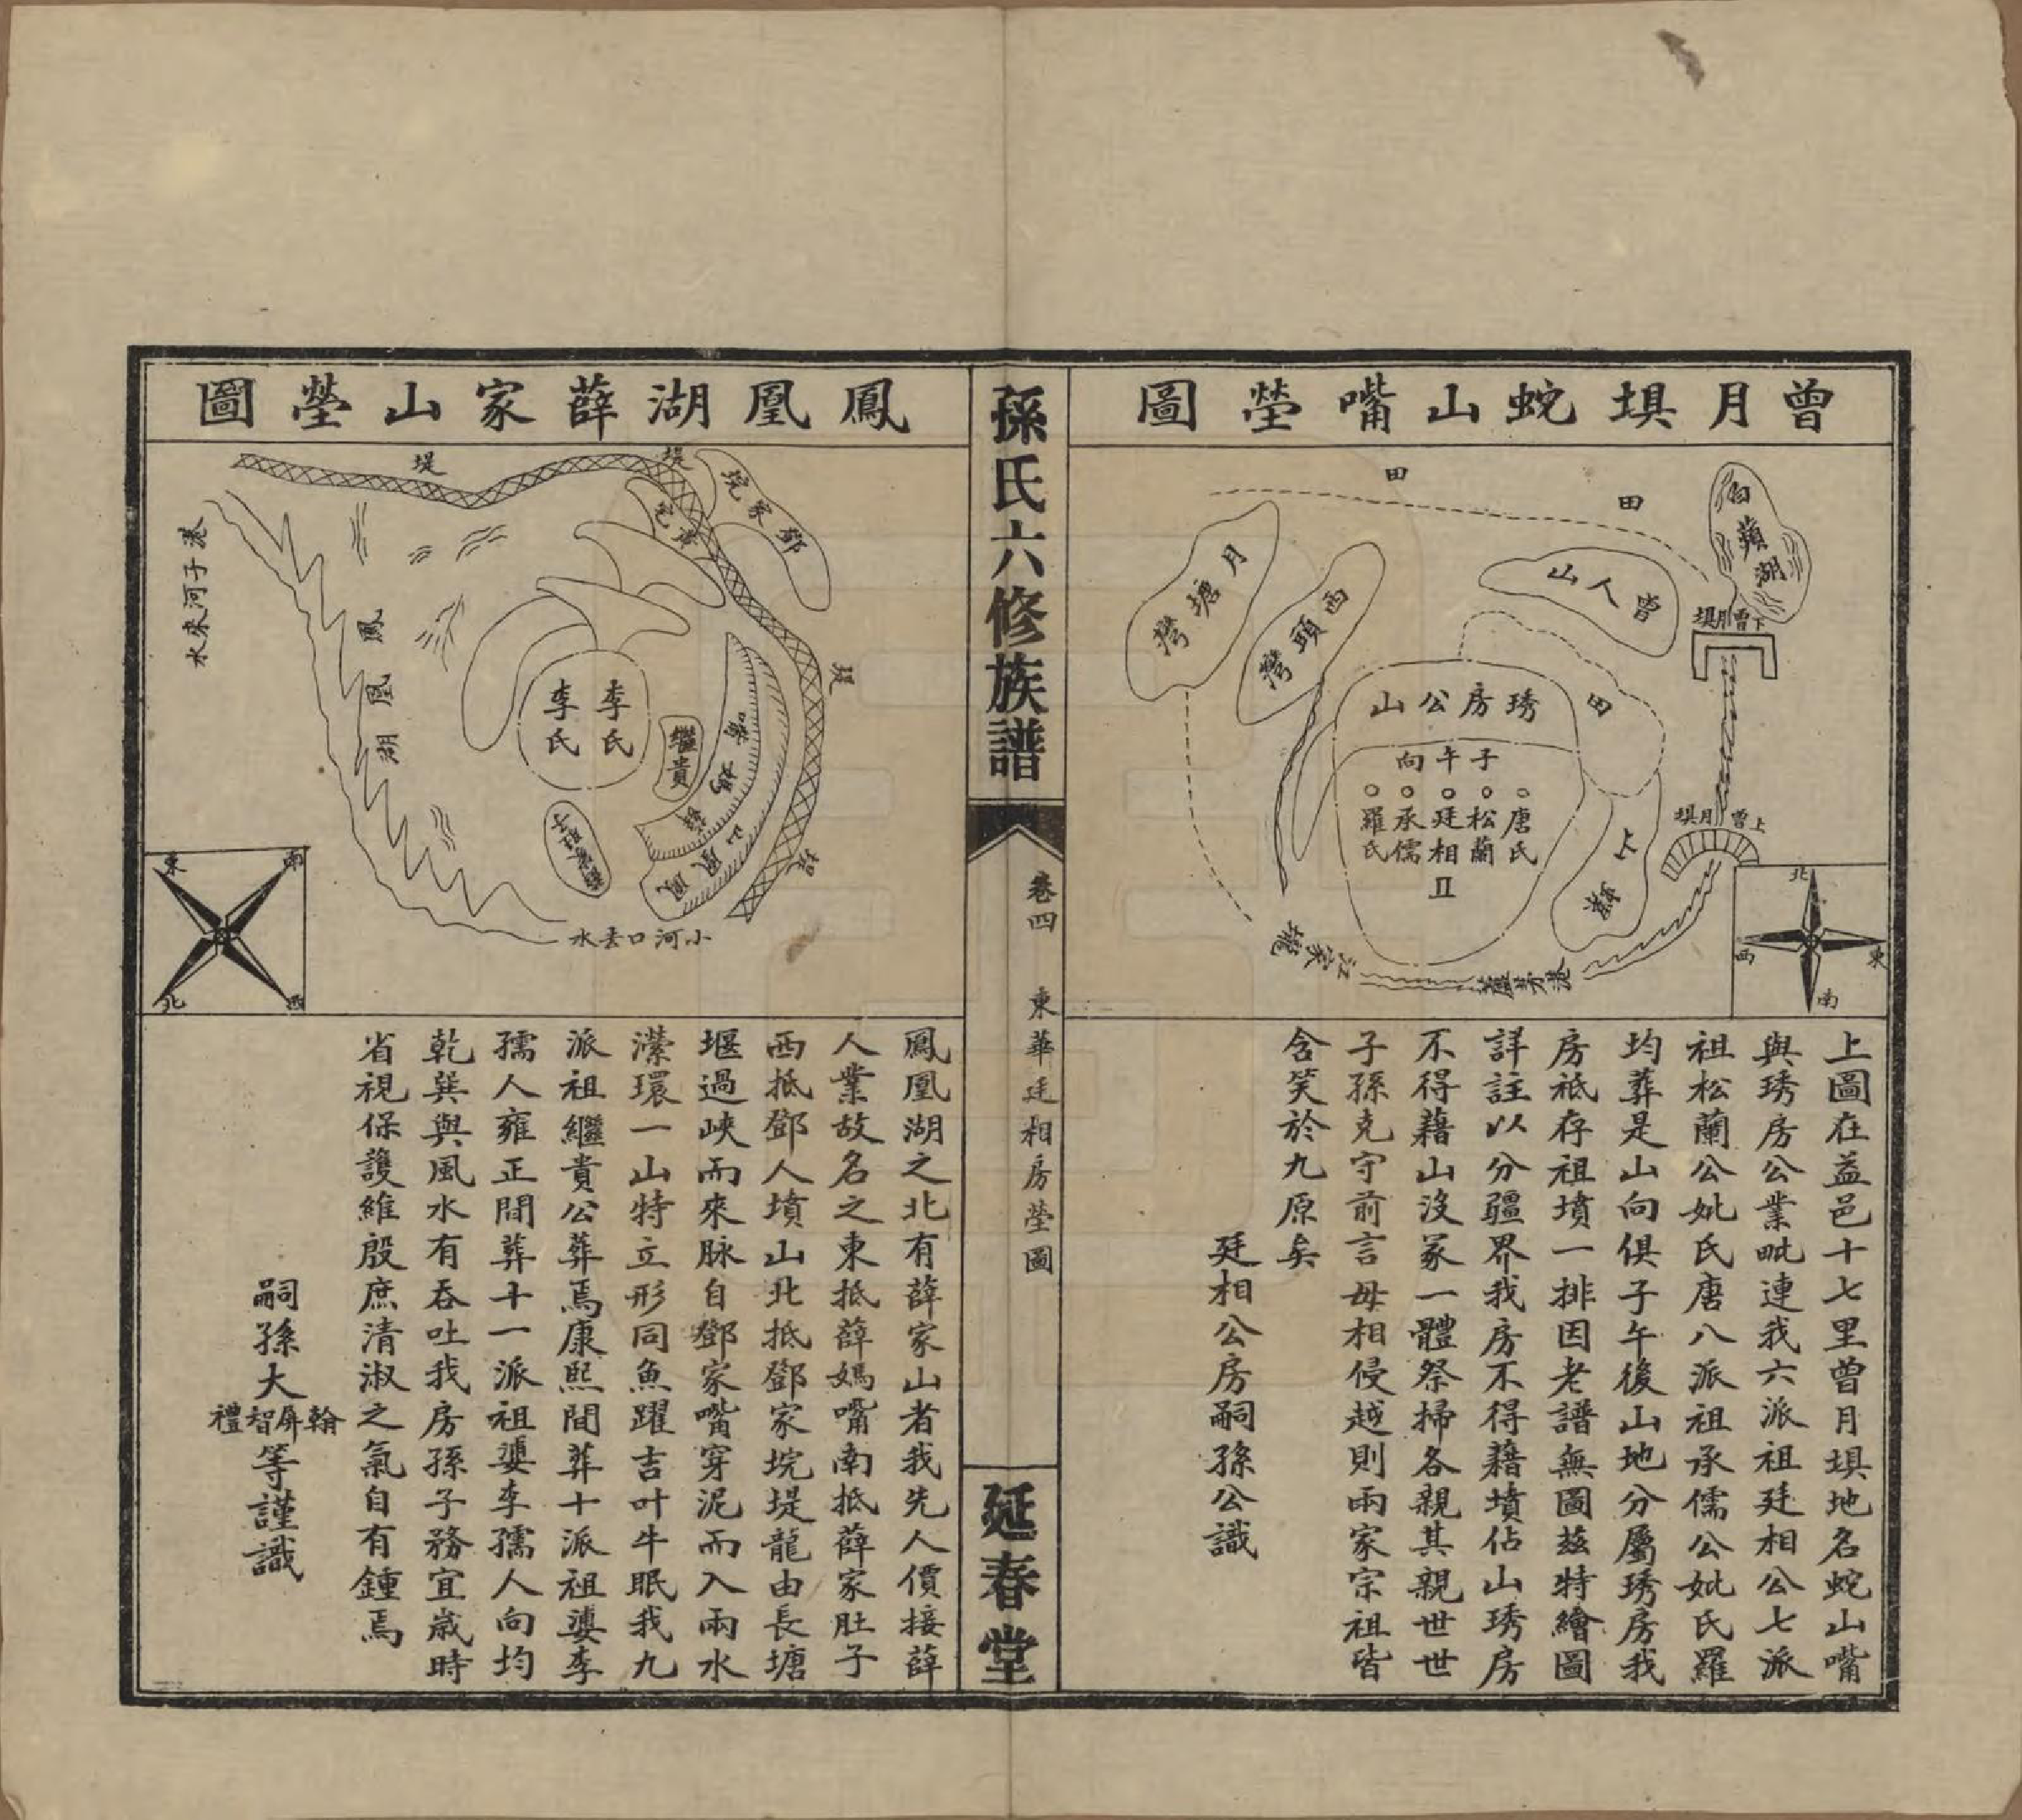 曾月垻蛇山嘴塋圖
田
田
白蘋湖
下曾月垻
曾人山
月塘灣
西頭灣
琇房公山
田
子午向
唐氏
松蘭
廷相
承儒
羅氏
上曾月垻
上
江家壩
北
東
南
西
上圖在益邑十七里曾月垻地名蛇山嘴
與琇房公業毗連我六派祖廷相公七派
祖松蘭公妣氏唐八派祖承儒公妣氏羅
均葬是山向俱子午後山地分屬琇房我
房祗存祖墳一排因老譜無圖茲特繪圖
詳註以分疆界我房不得藉墳佔山琇房
不得藉山沒冢一體祭掃各親其親世世
子孫克守前言毋相侵越則兩家宗祖皆
含笑於九原矣
廷相公房嗣孫公識
孫氏六修族譜
卷四
東華廷相房塋圖
延春堂
鳳凰湖薛家山塋圖
堤
堤
鄧家垸
堤
堤
港子河來水
鳳凰湖
李氏
李氏
繼貴
薛媽嘴
鳳凰山
薛家肚子
小河口去水
南
東
西
北
鳳凰湖之北有薛家山者我先人價接薛
人業故名之東抵薛媽嘴南抵薛家肚子
西抵鄧人墳山北抵鄧家垸堤龍由長塘
堰過峽而來脉自鄧家嘴穿泥而入兩水
瀠環一山特立形同魚躍吉叶牛眠我九
派祖繼貴公葬焉康熙間葬十派祖婆李
孺人雍正間葬十一派祖婆李孺人向均
乾巽與風水有吞吐我房孫子務宜歲時
省視保護維殷庶清淑之氣自有鍾焉
嗣孫大翰屏智禮等謹識